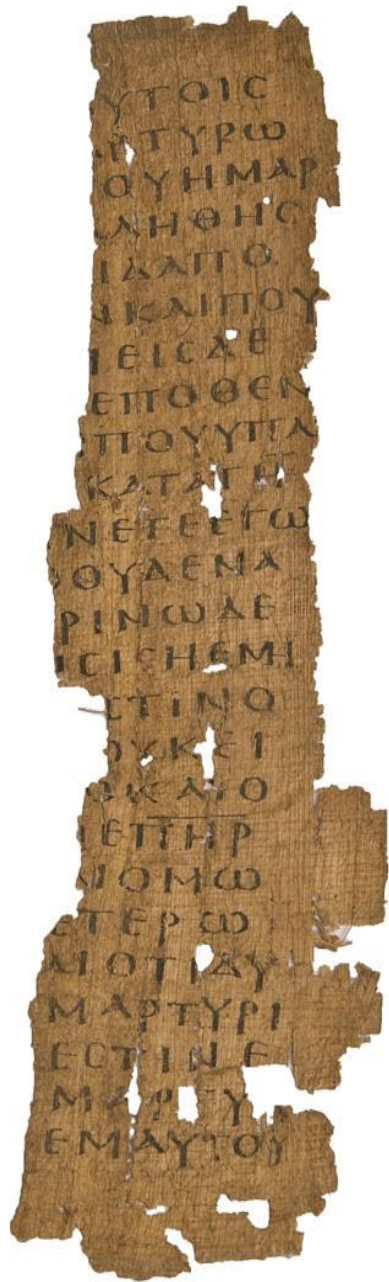 ΥΤΟΙϹ
ΡΤΥΡΩ
ΟΥΗΜΑΡ
ΛΗΘΗϹ
ΙΔΑΠΟ
ΝΚΑΙΠΟΥ
ΕΙϹΔΕ
ΕΠΟΘΕΝ
ΠΟΥΥΠΑ
ΚΑΤΑΤΗ
ΝΕΤΕΕΓΩ
ΟΥΔΕΝΑ
ΡΙΝΩΔΕ
ΙϹΙϹΗΕΜΗ
ϹΤΙΝΟ
ΟΥΚΕΙ
ΚΑΙΟ
ΕΠΗΡ
ΝΟΜΩ
ΕΤΕΡΩ
ΑΙΟΤΙΔΥ
ΜΑΡΤΥΡΙ
ΕϹΤΙΝΕ
ΜΑΡΤΥ
ΕΜΑΥΤΟΥ